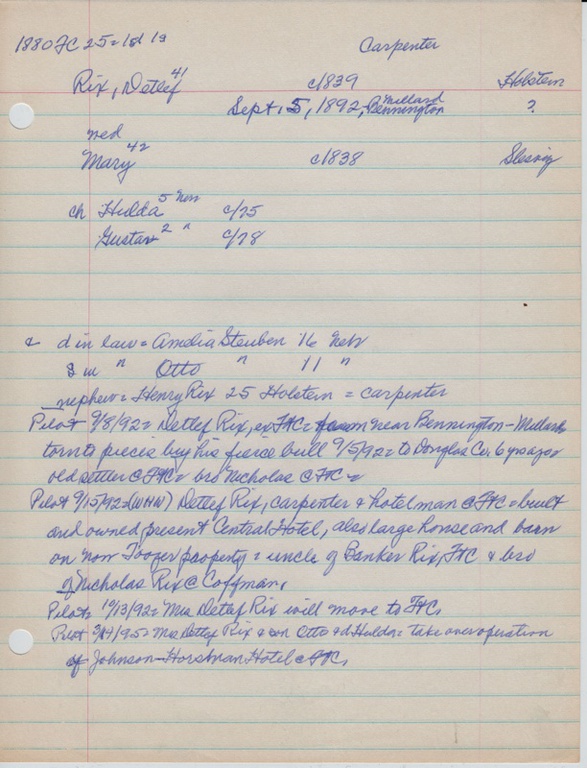 1880 FC 25 = 1st 19
Carpenter
Rix, Detlef 41 c1839 Holstein
Sept. 5, 1892, Millard Bennington ?
med
Mary 42 c1838 Slesvig
ch Hulda 5 Neb c/75
Gustav 2 " c/78
& d in law = Amelia Steuben 16 Neb
S in " Otto " 11 "
nephew = Henry Rix 25 Holstein = carpenter
Pilot 9/8/92 = Detlef Rix, ex FtC = near Bennington-Millard
torn to pieces by his fierce bull 9/5/92 = to Douglas Co. 6 yrs ago =
old settler @ FtC = bro Nicholas @ FtC =
Pilot 9/15/92 = (WHW) Detlef Rix, carpenter & hotel man @ FtC = built
and owned present Central Hotel, also large house and barn
on now Toozer property = uncle of Banker Rix, FtC & bro
of Nicholas Rix @ Coffman,
Pilot = 10/13/92 = Mrs Detlef Rix will move to FtC,
Pilot 2/14/95 = Mrs Detlef Rix & son Otto & d Hulda = take over operation
of Johnson-Horstman Hotel @ FtC,